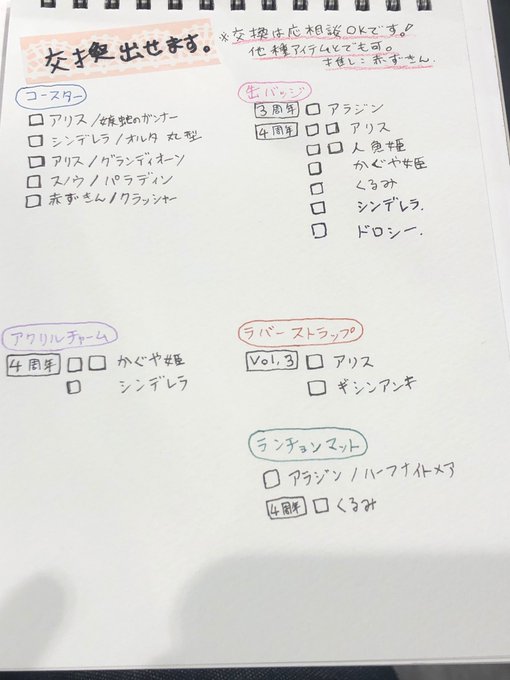 交換出せます。
※交換は応相談OKです。!
他種アイテムとでも可。
推し:赤ずきん
コースター
□ アリス/嫉妬のガンナー
□ シンデレラ/オルタ 丸型
□ アリス/グランディオーン
□ スノウ/パラディン
□ 赤ずきん/クラッシャー
缶バッジ
3周年 □ アラジン
4周年 □ □ アリス
□ □ 人魚姫
□ かぐや姫
□ くるみ
□ シンデレラ.
□ ドロシー.
アクリルチャーム
4周年 □ □ かぐや姫
□ シンデレラ
ラバーストラップ
Vol.3 □ アリス
□ ギシンアンキ
ランチョンマット
□ アラジン/ハーフナイトメア
4周年 □ くるみ